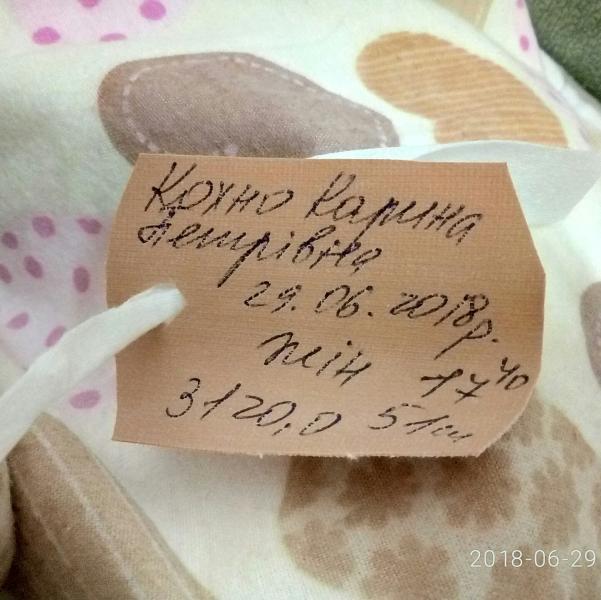 Кохно Карина
Петрівна
29.06.2018р.
жін 17 40
3120,0 51см
2018-06-29